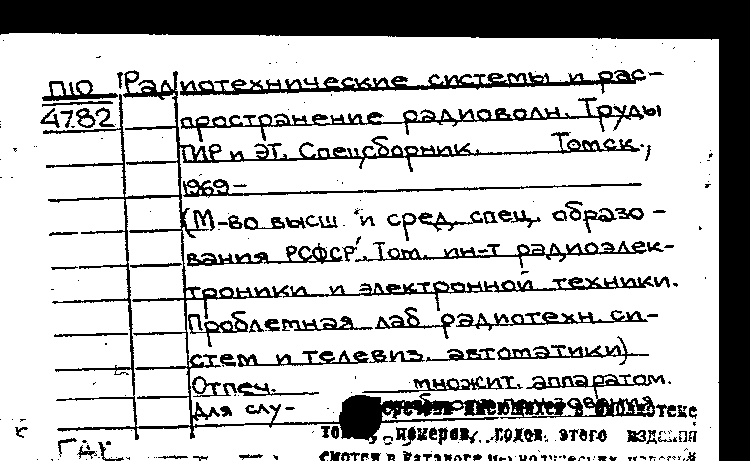 П10 Радиотехнические системы и рас-
4782 пространение радиоволн. Труды
ТИР и ЭТ. Спецсборник. Томск.,
1969-
(М-во высш. и сред. спец. образо-
вания РСФСР. Том. ин-т радиоэлек-
троники и электронной техники.
Проблемная лаб радиотехн. си-
стем и телевиз. автоматики)
Отпеч. множит. аппаратом.
Для слу-
имеющихся в библиотеке
номеров, годов этого издания
смотри в каталоге
ГАК